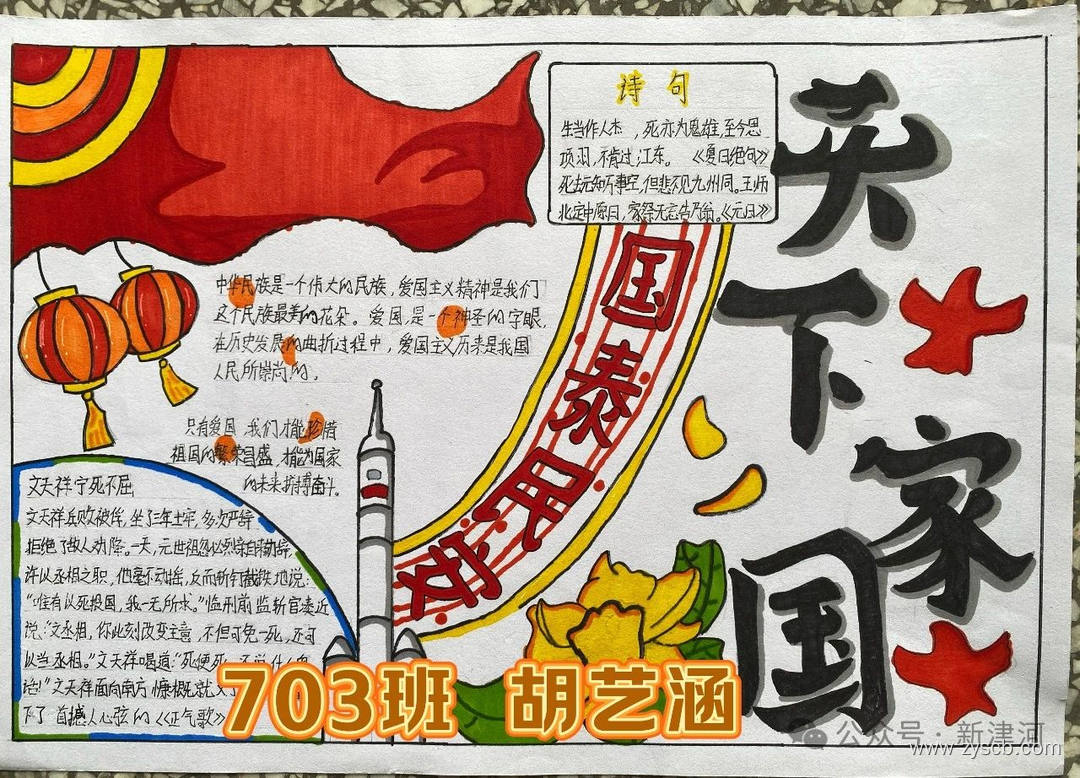 诗句
生当作人杰，死亦为鬼雄，至今思
项羽，不肯过江东。《夏日绝句》
死去元知万事空，但悲不见九州同。王师
北定中原日，家祭无忘告乃翁。《元日》
天下家国
国泰民安
中华民族是一个伟大的民族，爱国主义精神是我们
这个民族最美的花朵。爱国，是一个神圣的字眼，
在历史发展的曲折过程中，爱国主义历来是我国
人民所崇尚的。
只有爱国，我们才能珍惜
祖国的繁荣昌盛，才能为国家
的未来拼搏奋斗。
文天祥宁死不屈
文天祥兵败被俘，坐了三年土牢，多次严辞
拒绝了敌人劝降。一天，元世祖忽必烈亲自劝降，
许以丞相之职，他毫不动摇，反而斩钉截铁地说：
“唯有以死报国，我一无所求。”临刑前，监斩官凑近
说：“文丞相，你此刻改变主意，不但可免一死，还可
以当丞相。”文天祥喝道：“死便死
话！”文天祥面向南方慷慨就
下了首撼人心弦的《正气歌》
703班 胡艺涵
公众号·新津河
www.zyscb.com